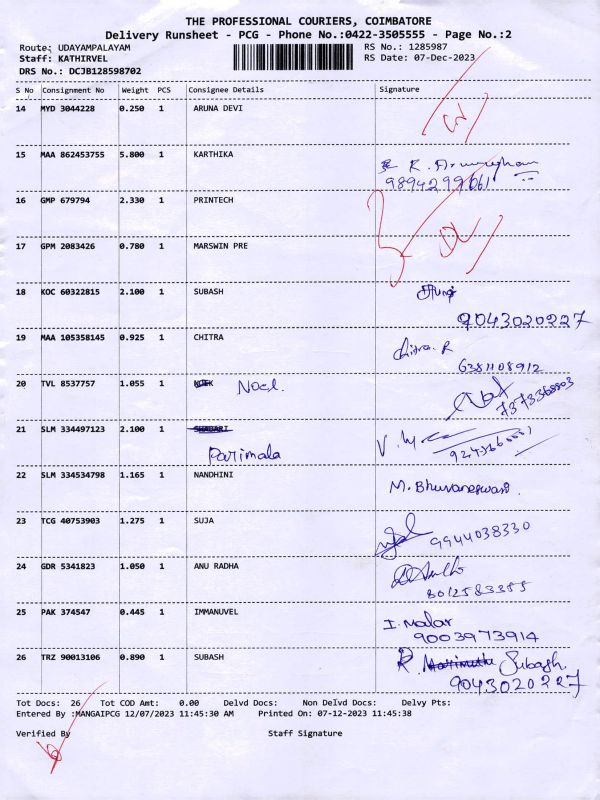 THE PROFESSIONAL COURIERS, COIMBATORE
Delivery Runsheet - PCG - Phone No.:0422-3505555 - Page No.:2
Route: UDAYAMPALAYAM RS No.: 1285987
Staff: KATHIRVEL RS Date: 07-Dec-2023
DRS No.: DCJB128598702
S No Consignment No Weight PCS Consignee Details Signature
14 MYD 3044228 0.250 1 ARUNA DEVI
15 MAA 862453755 5.800 1 KARTHIKA
9894299061
16 GMP 679794 2.330 1 PRINTECH
17 GPM 2083426 0.780 1 MARSWIN PRE
18 KOC 60322815 2.100 1 SUBASH
9043020227
19 MAA 105358145 0.925 1 CHITRA Chitra. R
6381108912
20 TVL 8537757 1.055 1 Noel.
7373368803
21 SLM 334497123 2.100 1
Parimala
22 SLM 334534798 1.165 1 NANDHINI M. Bhuvaneswari.
23 TCG 40753903 1.275 1 SUJA 9944038330
24 GDR 5341823 1.050 1 ANU RADHA
8012583355
25 PAK 374547 0.445 1 IMMANUVEL I. Malar
9003973914
26 TRZ 90013106 0.890 1 SUBASH R. Subash.
9043020227
Tot Docs: 26 Tot COD Amt: 0.00 Delvd Docs: Non Delvd Docs: Delvy Pts:
Entered By :MANGAIPCG 12/07/2023 11:45:30 AM Printed On: 07-12-2023 11:45:38
Verified By Staff Signature